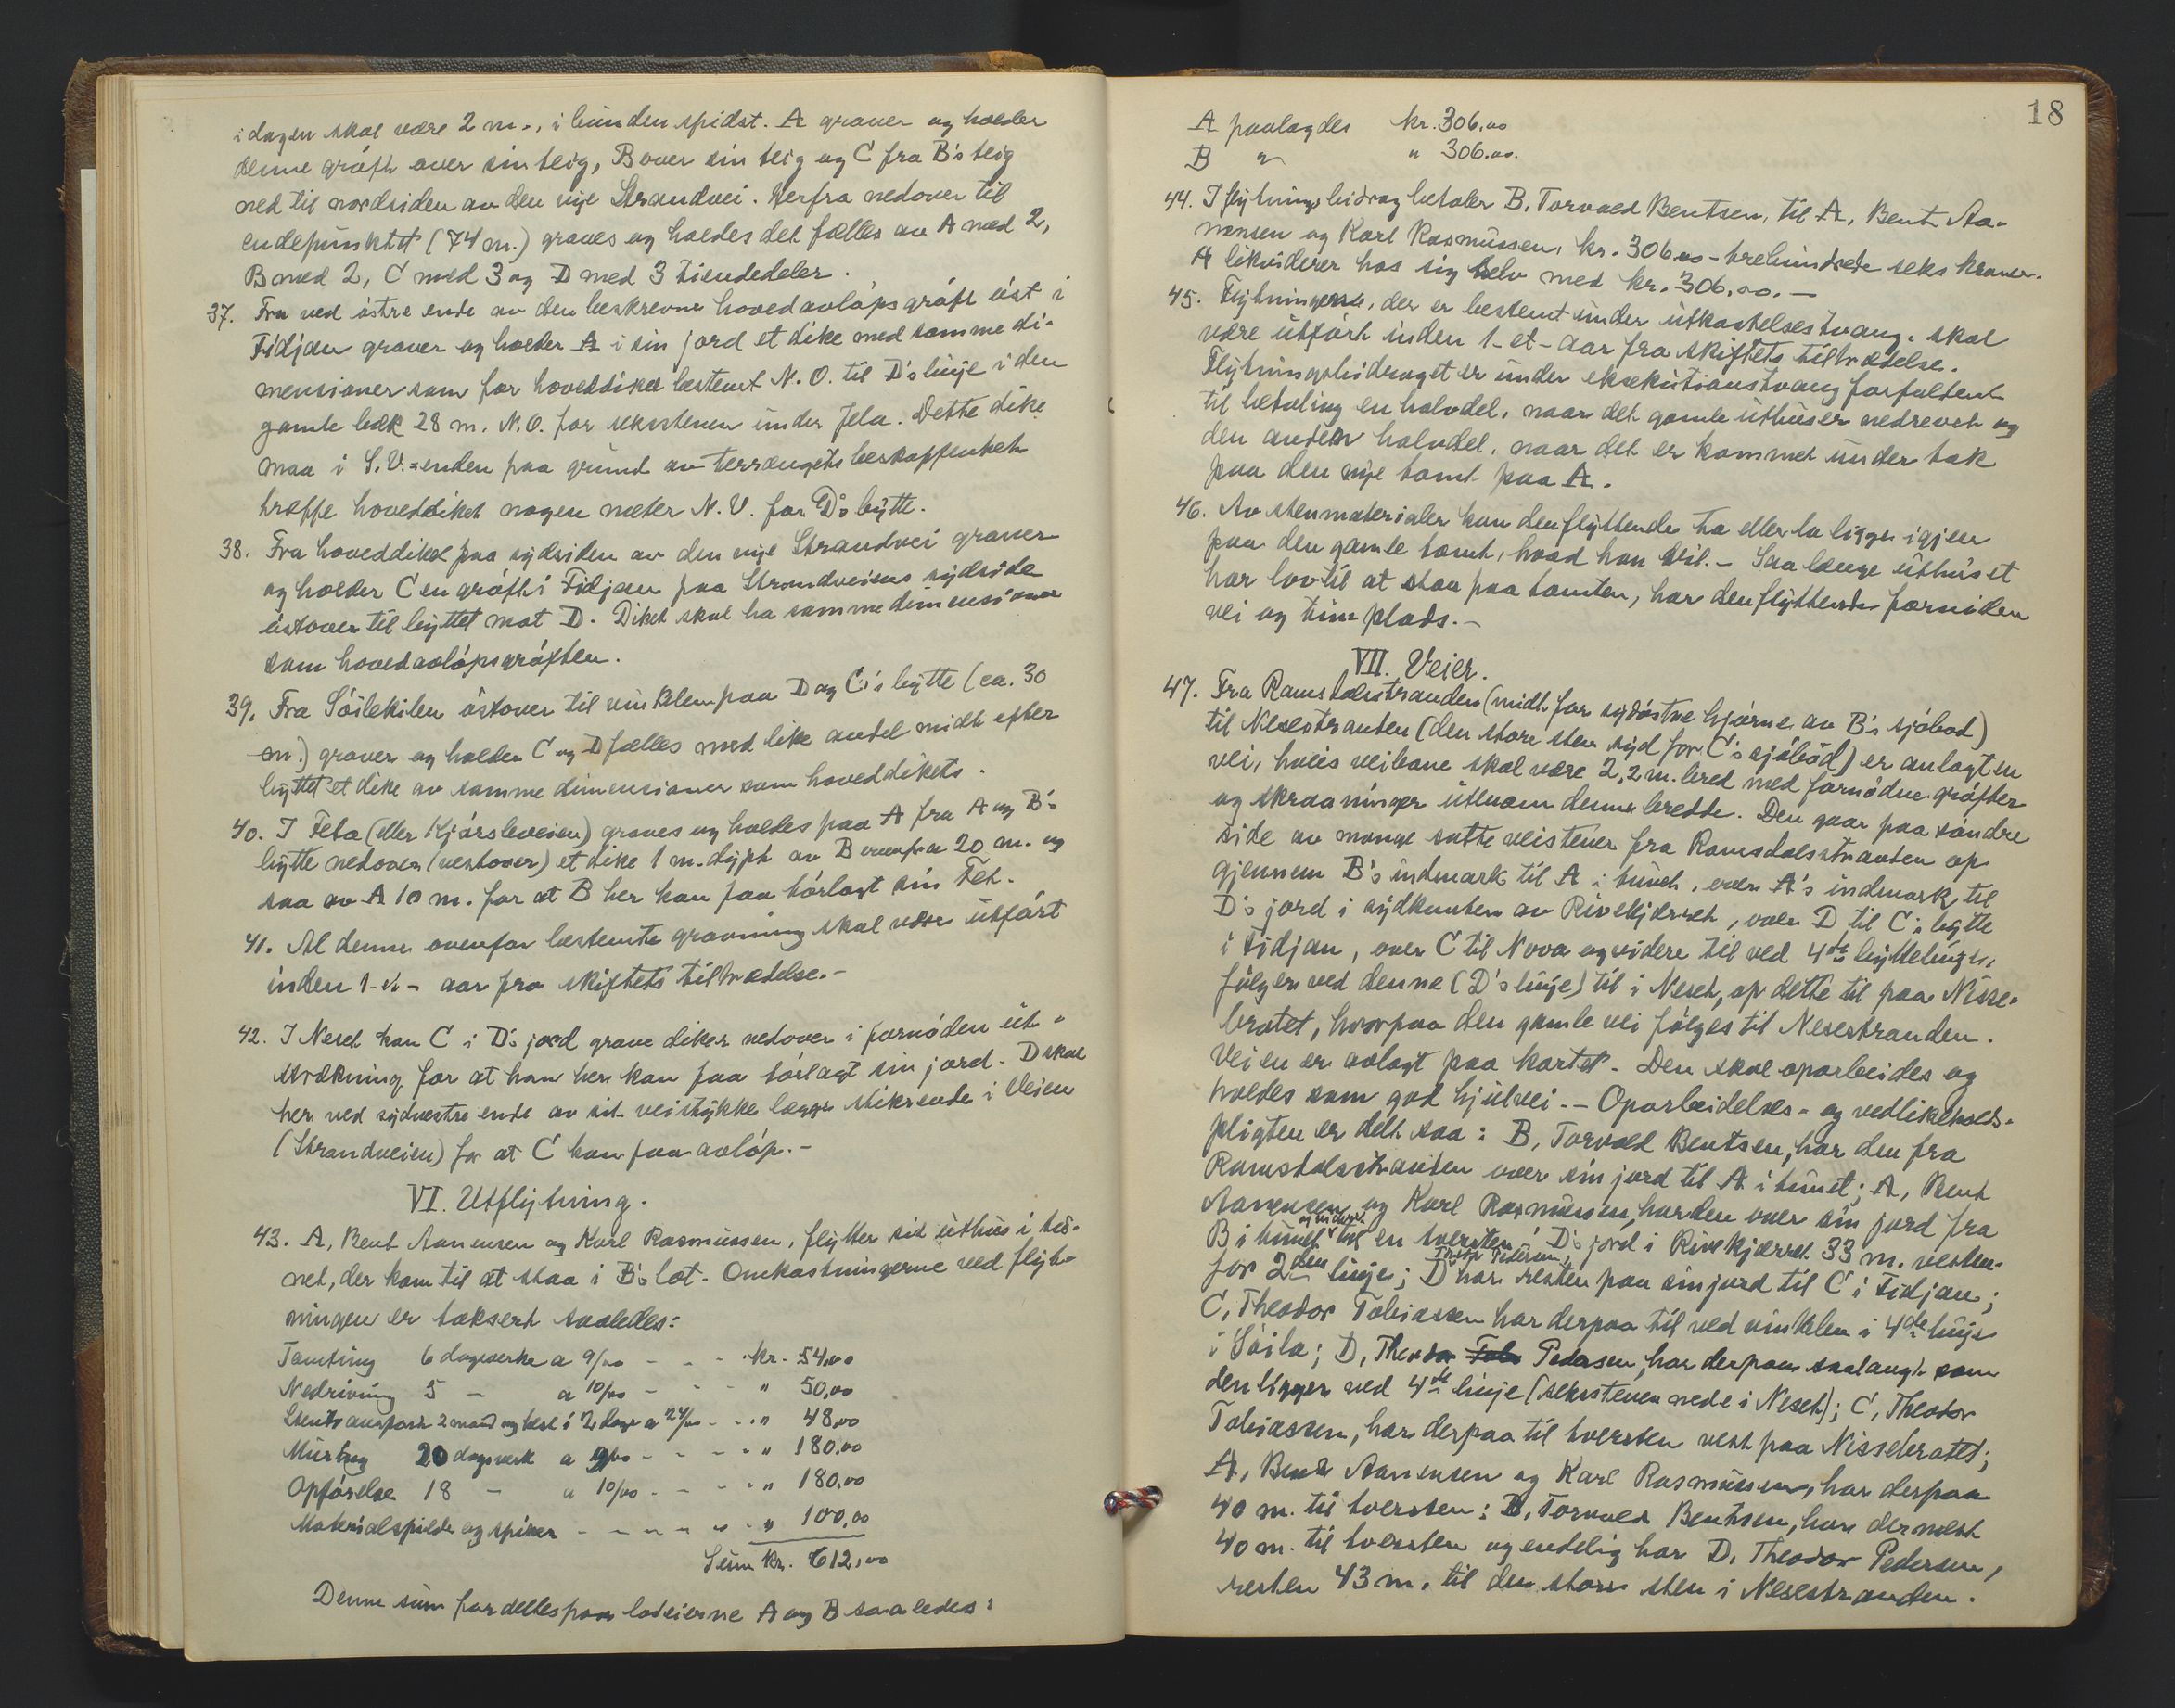 i dagen skal være 2 m., i bunden spidst. A graver og holder
denne gröft over sin teig, B over sin teig og C fra B's teig
ned til nordsiden av den nye Strandvei. Herfra nedover til
endepunktet (74 m.) graves og holdes det fælles av A med 2,
B med 2, C med 3 og D med 3 tiendedeler.
37. Fra ved östre ende av den beskrevne hovedavlöpsgröft öst i
Fidjan graver og holder A i sin jord et dike med samme di-
mensioner som for hoveddiket bestemt N.O. til D's linje i den
gamle bæk 28 m. N.O. for sekssten under Jela. Dette dike
maa i S.V.-enden paa grund av terrængets beskaffenhet
træffe hoveddiket nogen meter N.V. for D's bytte.
38. Fra hoveddiket paa sydsiden av den nye Strandvei graver
og holder C en gröft i Fidjan paa Strandveiens sydside
östover til byttet mot D. Diket skal ha samme dimensioner
som hovedavlöpsgröften.
39. Fra Söilekilen östover til vinkelen paa D og C's bytte (ca. 30
m.) graver og holder C og D fælles med like andel midt efter
byttet et dike av samme dimensioner som hoveddikets.
40. I Feta (eller Kjörsleveien) graves og holdes paa A fra A og B's
bytte nedover (vestover) et dike 1 m. dypt av B ovenfra 20 m. og
saa av A 10 m. for at B her kan faa törlagt sin Fet.
41. Al denne ovenfor bestemte gravning skal være utfört
inden 1-et- aar fra skiftets tiltrædelse.-
42. I Neset kan C i D's jord grave diker nedover i fornöden ut-
strækning for at han her kan faa törlagt sin jord. D skal
her ved sydvestre ende av sit veistykke lægge stikrende i Veien
(Strandveien) for at C kan faa avlöp.-
VI. Utflytning.
43. A, Bent Aanensen og Karl Rasmussen, flytter sit uthus i tu-
net, der kom til at staa i B's lot. Omkostningerne ved flyt-
ningen er taksert saaledes:
Tomting 6 dagsverke a 9/00 - - - kr. 54,00
Nedrivning 5 - a 10/00 - - - " 50,00
Stentransport 2 mand og hest i 2 dage a 24/00 - - " 48,00
Muring 20 dagsverk a 9/00 - - - " 180,00
Opförelse 18 - a 10/00 - - - " 180,00
Materialspilde og spiker - - - - - " 100,00
Sum kr. 612,00
Denne sum fordeltes paa lodeierne A og B saaledes:
18
A paalagdes kr. 306.00
B " " 306.00.
44. I flytningsbidrag betaler B, Torvald Bentsen, til A, Bent Aa-
nensen og Karl Rasmussen, kr. 306.00 - trehundrede seks kroner.
A likviderer hos sig selv med kr. 306.00.-
45. Flytningerne, der er bestemt under utkastelsestvang, skal
være utfört inden 1-et- aar fra skiftets tiltrædelse.
Flytningsbidraget er under eksekutionstvang forfaldent
til betaling en halvdel, naar det gamle uthus er nedrevet og
den anden halvdel, naar det er kommet under tak
paa den nye tomt paa A.
46. Av stenmaterialer kan den flyttende ta eller la ligge igjen
paa den gamle tomt, hvad han vil.- Saa længe uthuset
har lov til at staa paa tomten, har den flyttende fornöden
vei og tun plads.-
VII. Veier.
47. Fra Ramsdalsstranden (midt for sydöstre hjörne av B's sjöbod)
til Nesestranten (den store sten syd for C's sjöbod) er anlagt en
vei, hvis veibane skal være 2,2 m. bred med fornödne gröfter
og skraaninger utenom denne bredde. Den gaar paa söndre
side av mange satte veistener fra Ramsdalsstranden op
gjennem B's indmark til A i tunet, over A's indmark til
D's jord i sydkanten av Rivekjærret, over D til C's bytte
i Fidjan, over C til Nova og videre til ved 4de byttelinje,
fölger ved denne (D's linje) til i Neset, op dette til paa Nisse-
bratet, hvorpaa den gamle vei fölges til Nesestranden.
Veien er avlagt paa kartet. Den skal oparbeides og
holdes som god hjulvei.- Oparbeidelses- og vedlikeholds-
pligten er delt saa: B, Torvald Bentsen, har den fra
Ramsdalsstranden over sin jord til A i tunet; A, Bent
Aanensen og Karl Rasmussen, har den over sin jord fra
B i tunet og videre til en tverrsten i D's jord i Rivekjærret 33 m. vesten-
for 2den linje; D Theodor Pedersen, har resten paa sin jord til C i Fidjan;
C, Theodor Tobiassen har derpaa til ved vinkelen i 4de linje
i Söila; D, Theodor Tobi Pedersen, har derpaa saalangt som
den ligger ved 4de linje (seksstenen nede i Neset); C, Theodor
Tobiassen, har derpaa til tverrsten vest paa Nissebratet;
A, Bent Aanensen og Karl Rasmussen, har derpaa
40 m. til tverrsten; B, Torvald Bentsen, har dernæst
40 m. til tverrsten og endelig har D, Theodor Pedersen,
resten 43 m. til den store sten i Nesestranden.